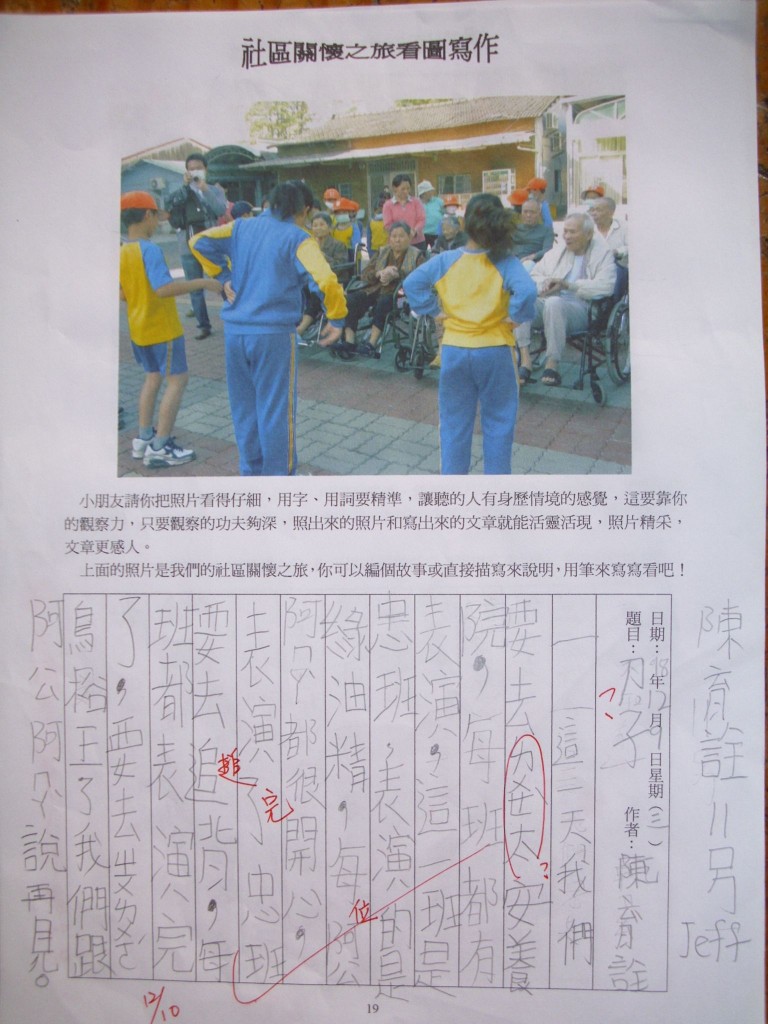 社區關懷之旅看圖寫作
小朋友請你把照片看得仔細，用字、用詞要精準，讓聽的人有身歷情境的感覺，這要靠你
的觀察力，只要觀察的功夫夠深，照出來的照片和寫出來的文章就能活靈活現，照片精采，
文章更感人。
上面的照片是我們的社區關懷之旅，你可以編個故事或直接描寫來說明，用筆來寫寫看吧！
陳育詮 11号
Jeff
日期：98年12月9日星期(三)
題目：
作者：陳育詮
這三天我們
要去ㄌㄞ太安養
院，每班都有
表演，這一班是
忠班，表演的是
綠油精，每位阿公
阿ㄇㄚ都很開心，
表演完了忠班
要去追背，每
班都表演完
了，要去
我們跟
阿公阿ㄇㄚ說再見。
12/10
19